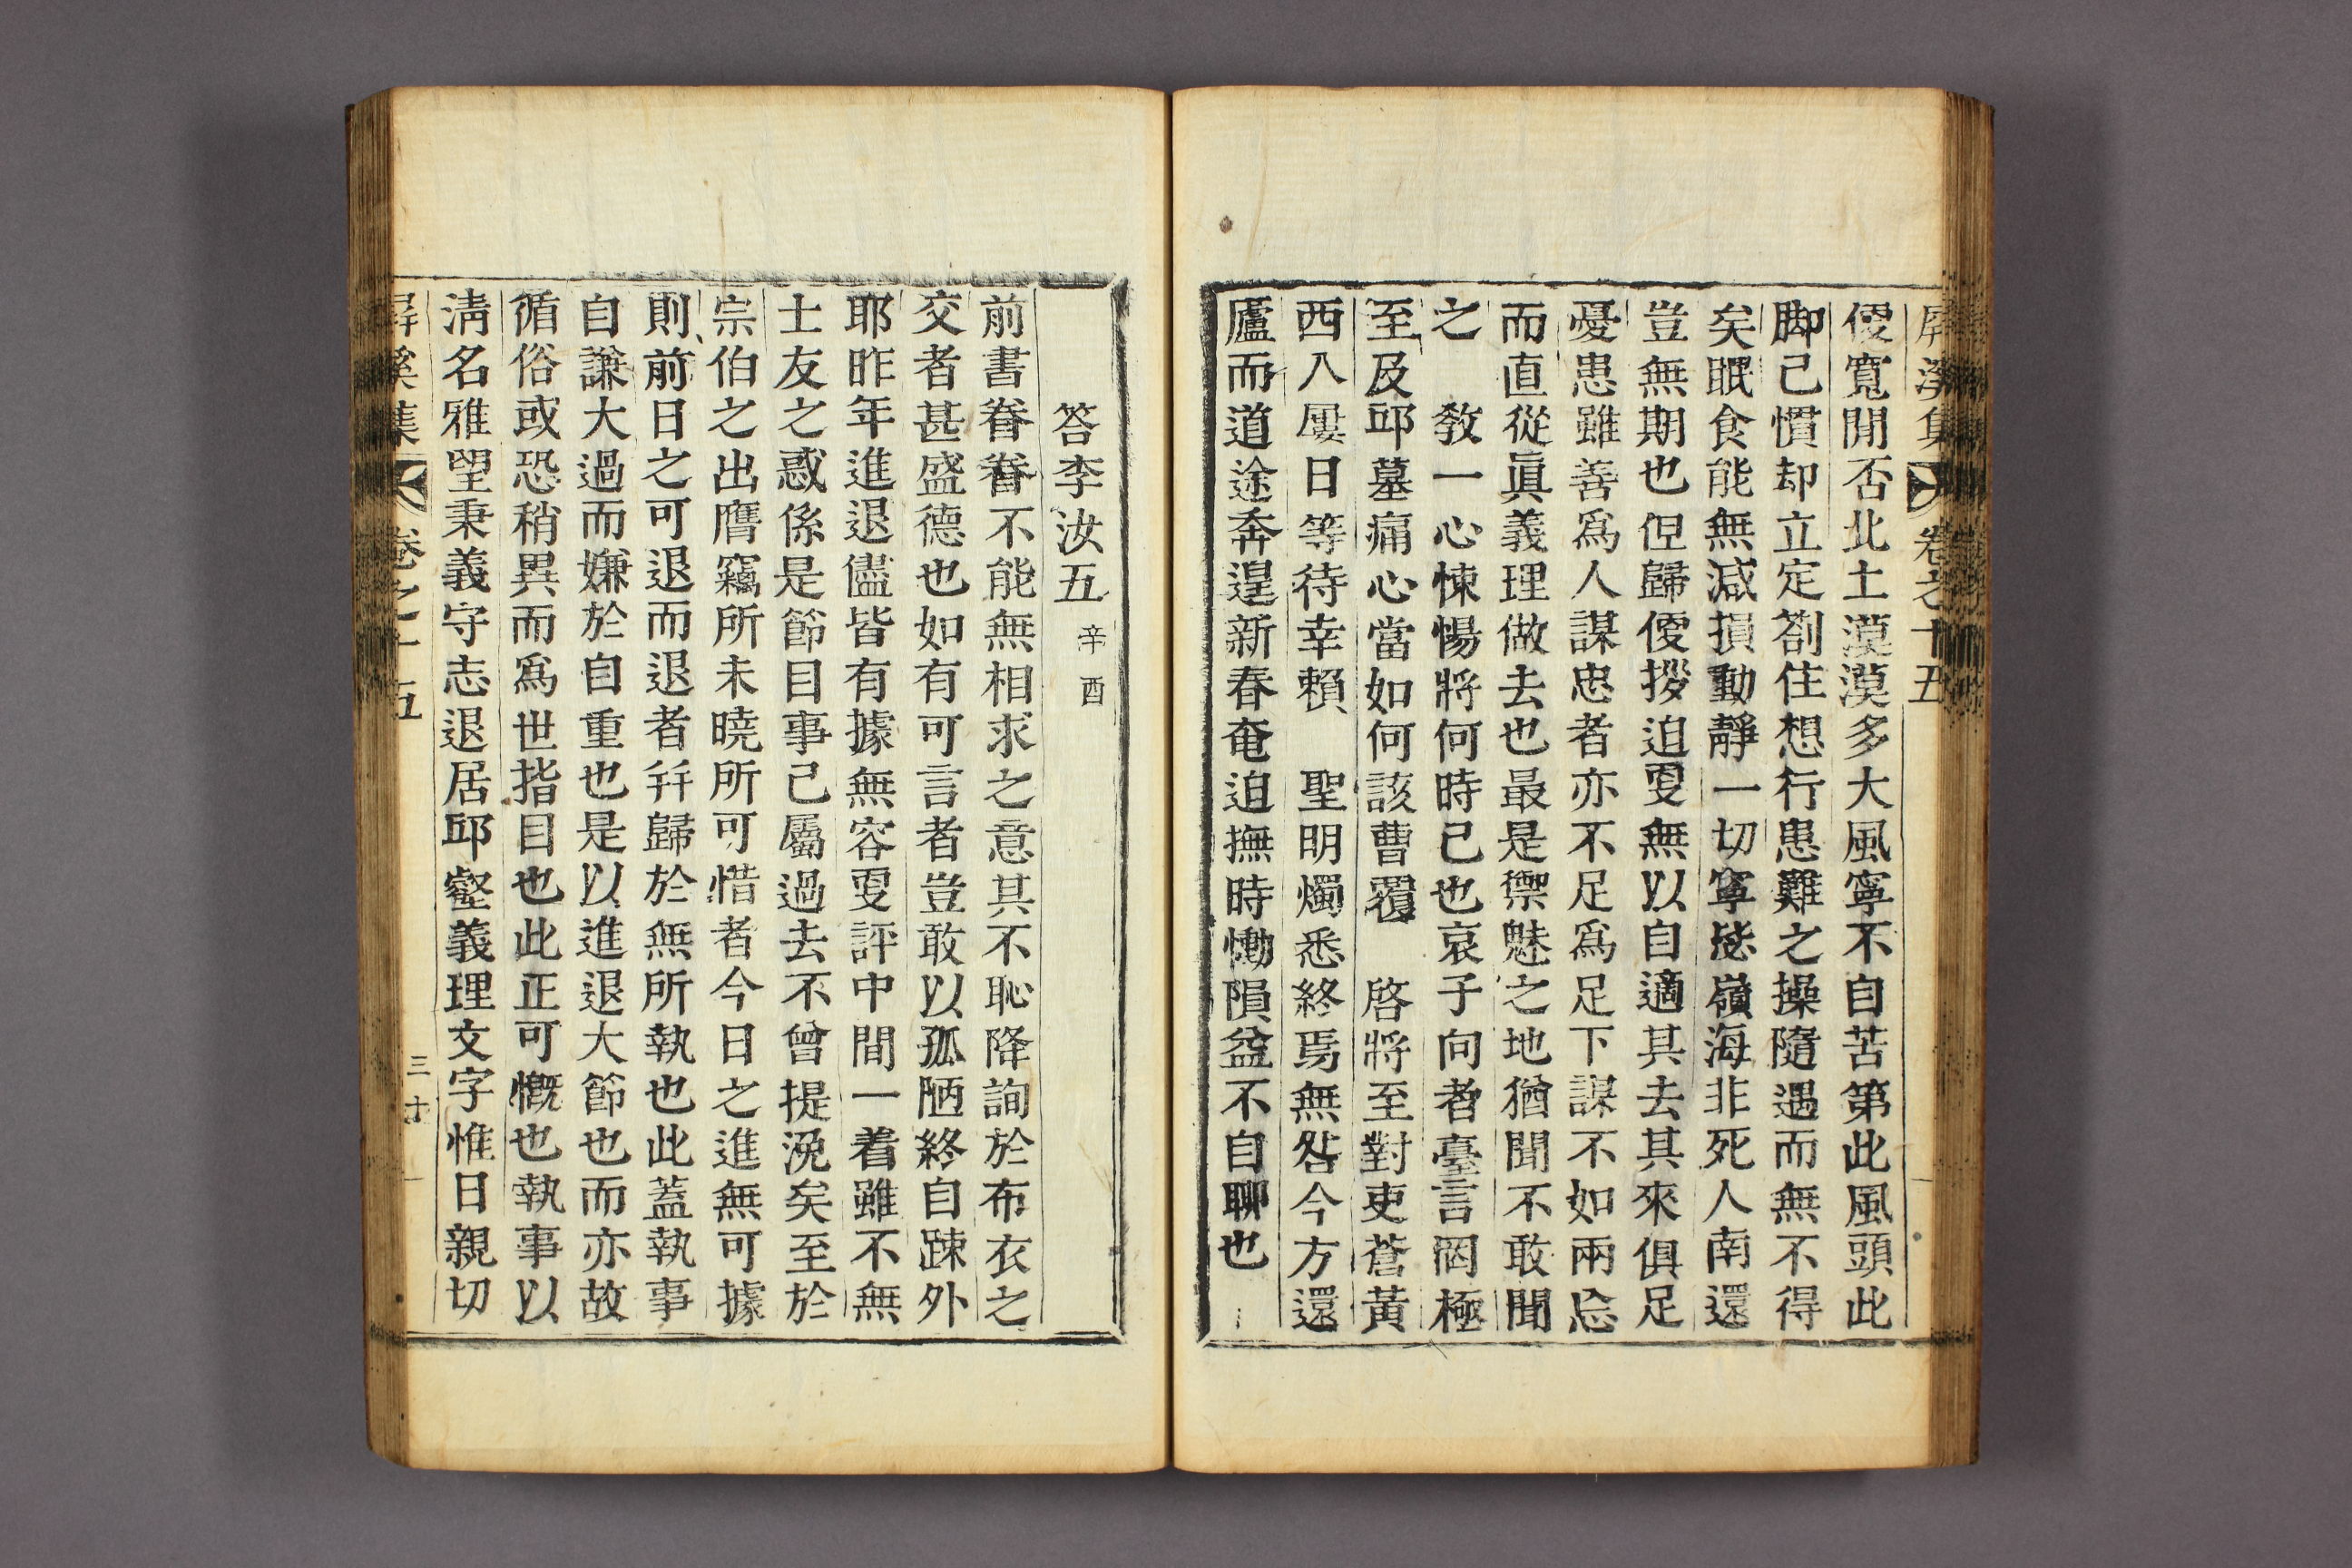 屛溪集 卷之十五
便寬閒否北土漠漠多大風寧不自苦第此風頭此
脚已慣却立定劄住想行患難之操隨遇而無不得
矣眠食能無减損動靜一切寧嶺海非死人南還
豈無期也但歸便撥迫更無以自適其去其來俱足
憂患雖善爲人謀忠者亦不足爲足下謀不如兩忘
而直從眞義理做去也最是禦魅之地猶聞不敢聞
之 敎一心悚惕將何時已也哀子向者臺言罔極
至及邱墓痛心當如何該曹覆 啓將至對吏蒼黃
西八屢日等待幸賴 聖明燭悉終焉無咎今方還
廬而道途奔遑新春奄迫撫時慟隕益不自聊也
答李汝五 辛酉
前書眷眷不能無相求之意其不恥降詢於布衣之
交者甚盛德也如有可言者豈敢以孤陋終自踈外
耶昨年進退儘皆有據無容更評中間一着雖不無
士友之惑係是節目事已屬過去不曾提浼矣至於
宗伯之出膺竊所未曉所可惜者今日之進無可據
則前日之可退而退者幷歸於無所執也此蓋執事
自謙大過而嫌於自重也是以進退大節也而亦故
循俗或恐稍異而爲世指目也此正可慨也執事以
淸名雅望秉義守志退居邱壑義理文字惟日親切
屛溪集 卷之十五 三十